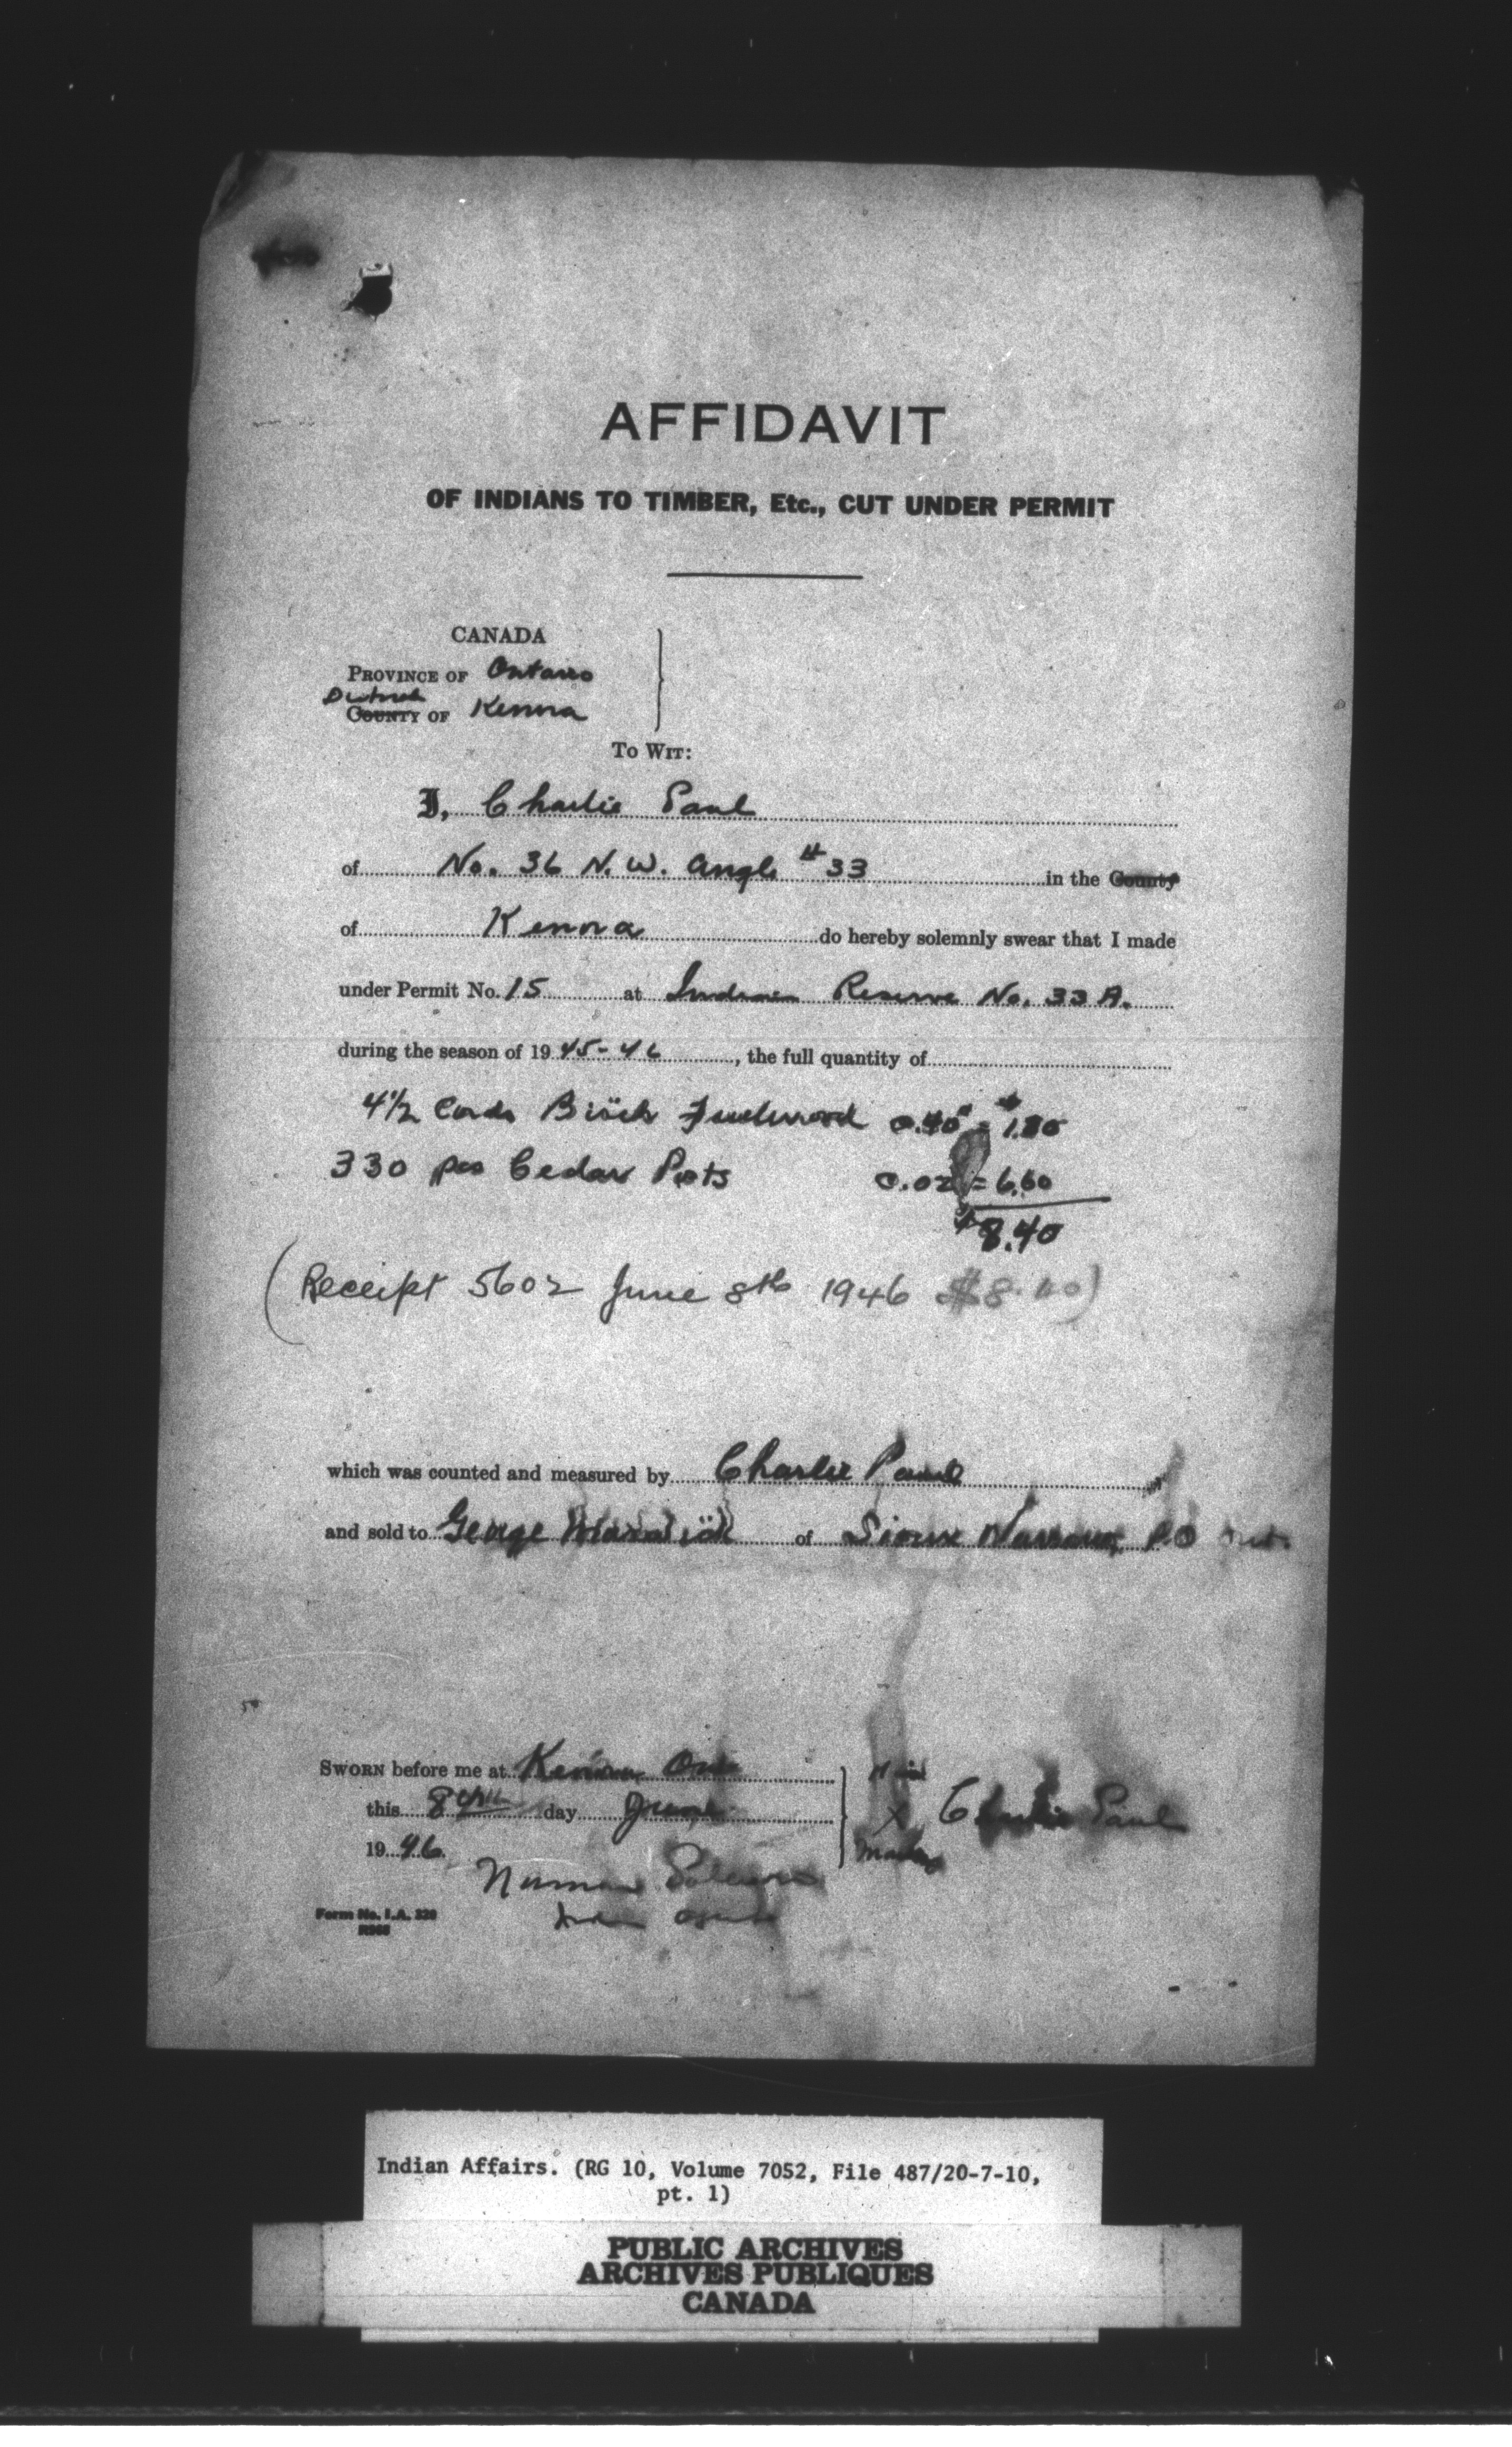 AFFIDAVIT
OF INDIANS TO TIMBER, Etc., CUT UNDER PERMIT
CANADA
PROVINCE OF Ontario
District
COUNTY OF Kenora
TO WIT:
I, Charlie Paul
of No. 36 N.W. Angle #33 in the County
of Kenora do hereby solemnly swear that I made
under Permit No. 15 at Indian Reserve No. 33 A.
during the season of 1945-46, the full quantity of
4½ Cords Birch Fuelwood @ .40 = $1.80
330 pcs Cedar Posts @ .02 = 6.60
$8.40
(Receipt 5602 June 8th 1946 $8.40)
which was counted and measured by Charlie Paul
and sold to George of Sioux Narrows, P.O Ont.
SWORN before me at Kenora Ont
this 8th day June
1946.
His
X Charlie Paul
Mark
Norman
Indian Agent
Form No. I.A. 320
R966
Indian Affairs. (RG 10, Volume 7052, File 487/20-7-10,
pt. 1)
PUBLIC ARCHIVES
ARCHIVES PUBLIQUES
CANADA